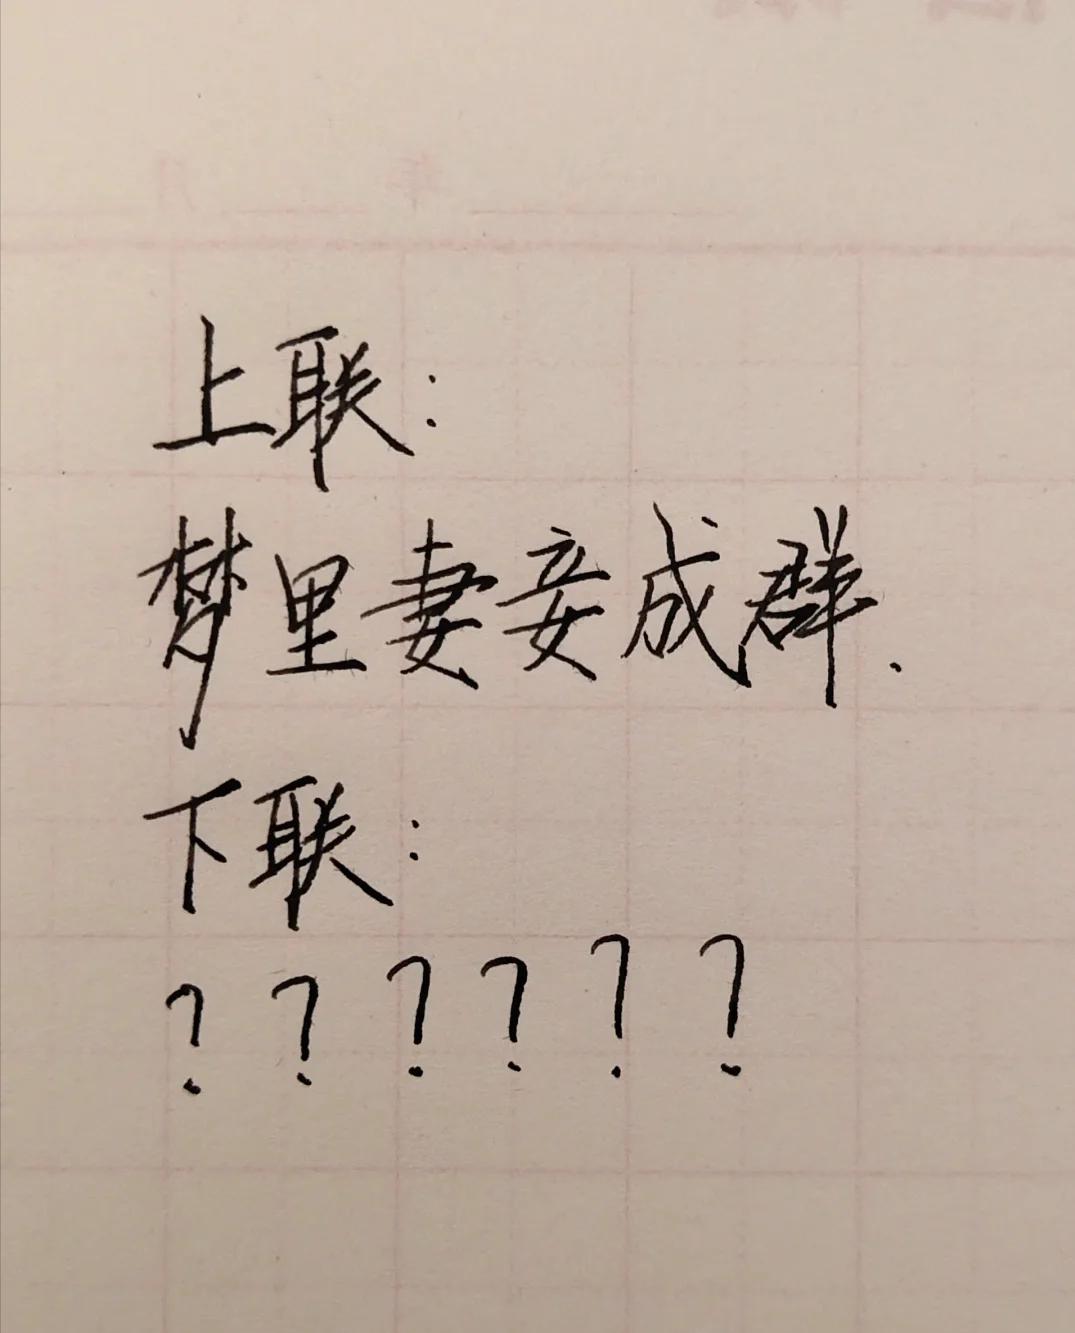 上联：
梦里妻妾成群.
下联：
？？？？？？